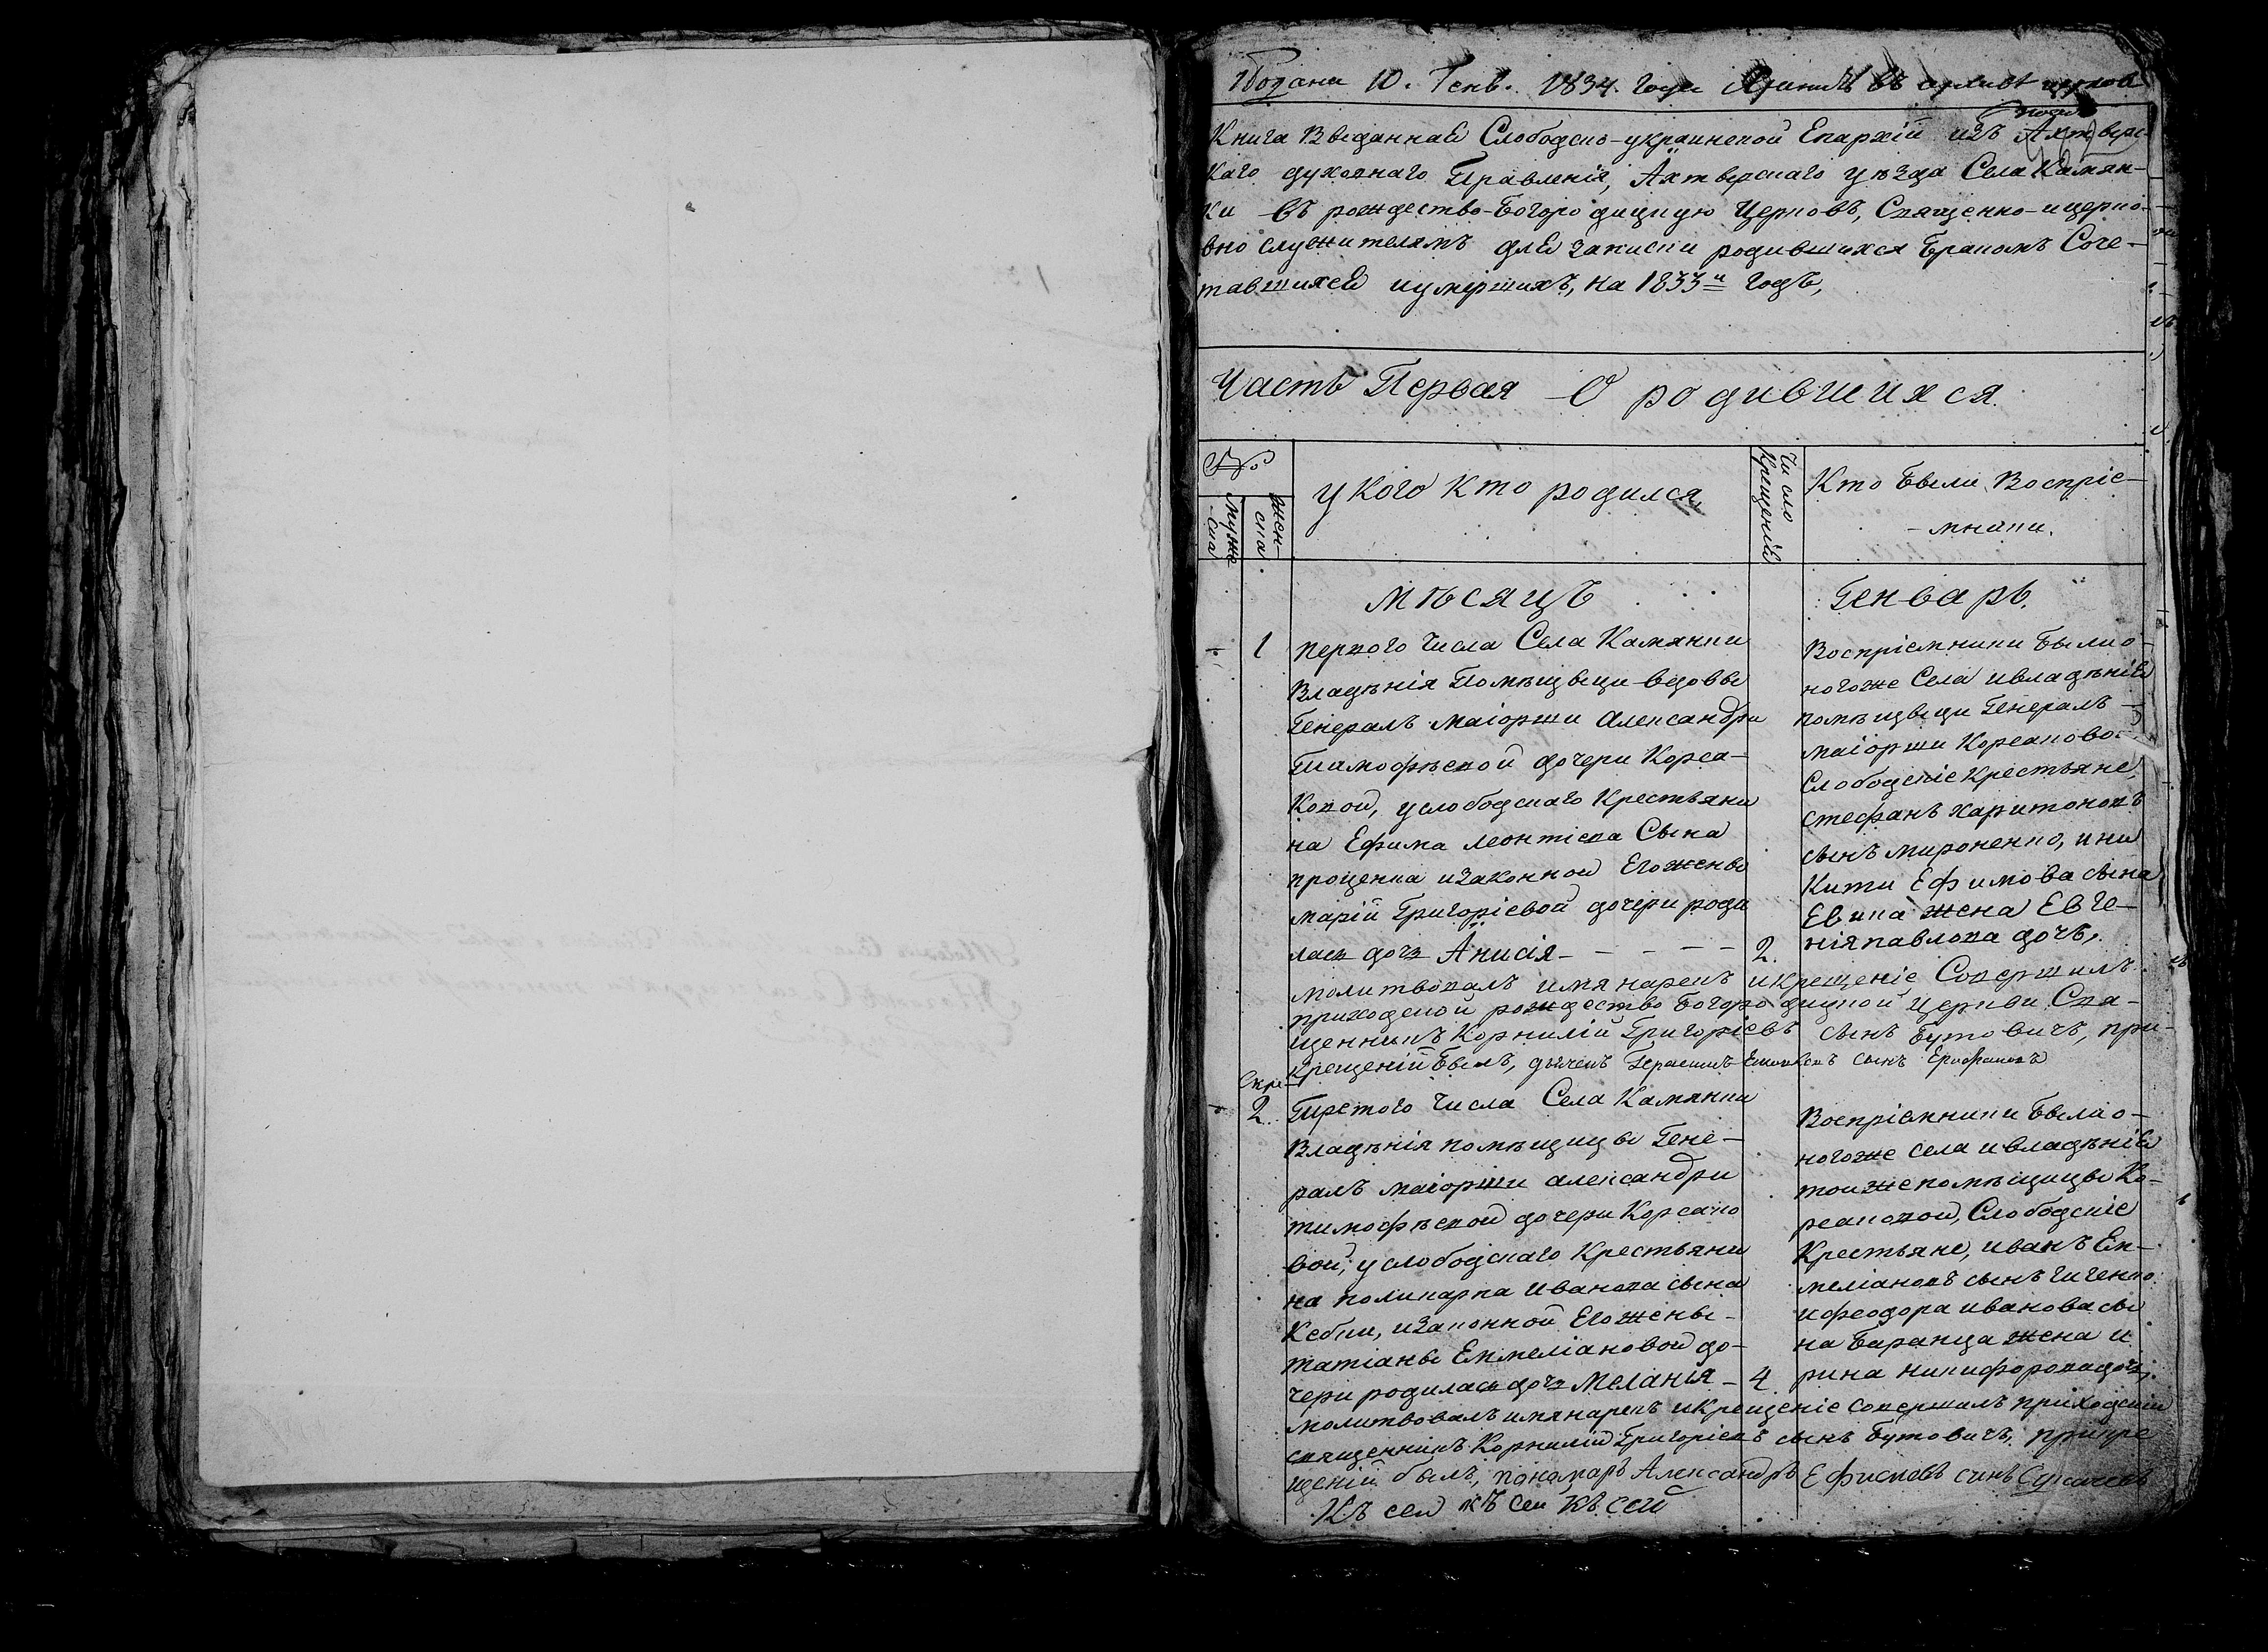 Подана 10. Генв. 1834. года
Книга Введанная Слободско-украинской Епархіи изъ Ахтыре-
каго духовнаго Правленія, Ахтырскаго уѣзда Села Камян-
ки въ рождество-Богородицную Церковъ, Священно-ицерко-
вно служителямъ для записки родившихся Бракомъ Соче-
тавшихся иумершихъ, на 1833й годъ,
Часть Первая О родившихся
№
мужеска
женска
у кого кто родился
Число Крещеній
Кто были Воспріе-
-мники.
мѣсяцъ Генварь.
1 первого числа Села Камянки
Владѣнія Помѣщыци вдовы
Генералъ маіорши Александры
Тимофѣевой дочери Корса-
Ковой, услободскаго Крестьяни
на Ефима леонтіева Сына
проценка изаконной Егожены
маріи Григоріевой дочери роди
лась дочь Анисія - - - - 2.
Воспріемники Были о-
ногоже Села ивладѣнія
помѣщыци Генералъ-
маіорши Корсаковой
Слободскіе крестьяне,
стефанъ харитоновъ
сынъ мироненко, и ни
Кити Ефимова сына
Евика жена Евге-
нія павлова дочь,
молитвовалъ имянарекъ икрещеніе Совершилъ
приходской рождество Богородицной Церкви Свя-
щенникъ Корнилій Григоріевъ сынъ Бутовичъ, при-
крещеніи Былъ, дьячекъ Герасимъ сынъ Епифановъ
2. Третого числа Села Камянки
Владѣнія помѣщицы Гене-
ралъ маіорши александры
тимофѣевой дочери Корсако
вой, услободскаго Крестьяни
на поликарпа иванова сына
Кебки, изаконной Егожены-
татіаны Еммеліановой до-
чери родилась дочь Меланія - 4.
Воспріемники Были о-
ногоже села ивладѣнія
тоиже помѣщицы Ко-
рсаковой, Слободскіе
Крестьяне, иванъ Ем-
меліановъ сынъ гиченко
ифеодора иванова сы
на Баранца жена и
рина никифорова дочь,
молитвовалъ имянарекъ икрещеніе совершилъ приходскій
священникъ Корнилій Григоріевъ сынъ Бутовичъ, прикре
щеніи былъ, пономарь Александръ Ефимовъ сынъ
Къ сей къ сей къ сей